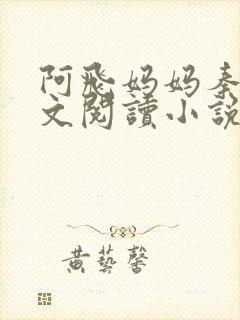 阿飛媽媽秦
文閱讀小說
黃藝馨